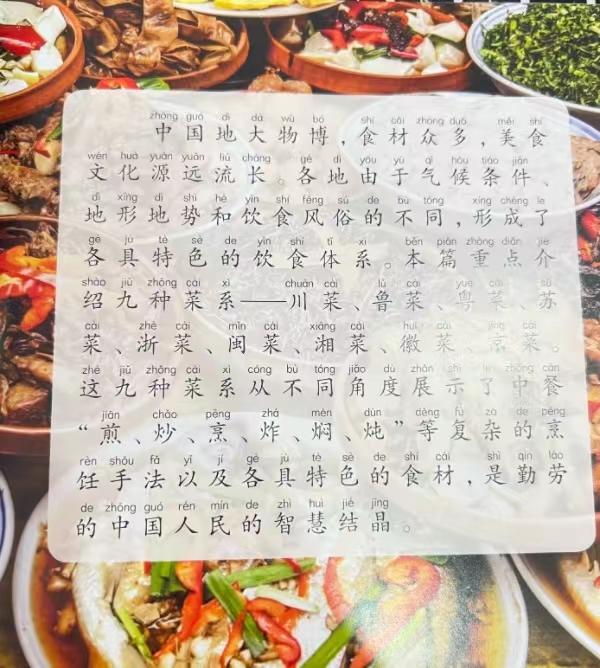 zhōng guó dì dà wù bó shí cái zhòng duō měi shí
中国地大物博，食材众多，美食
wén huà yuán yuǎn liú cháng gè dì yóu yú qì hòu tiáo jiàn
文化源远流长。各地由于气候条件、
dì xíng dì shì hé yǐn shí fēng sú de bù tóng xíng chéng le
地形地势和饮食风俗的不同，形成了
gè jù tè sè de yǐn shí tǐ xì běn piān zhòng diǎn jiè
各具特色的饮食体系。本篇重点介
shào jiǔ zhǒng cài xì chuān cài lǔ cài yuè cài sū
绍九种菜系——川菜、鲁菜、粤菜、苏
cài zhè cài mǐn cài xiāng cài huī cài jīng cài
菜、浙菜、闽菜、湘菜、徽菜、京菜。
zhè jiǔ zhǒng cài xì cóng bù tóng jiǎo dù zhǎn shì le zhōng cān
这九种菜系从不同角度展示了中餐
jiān chǎo pēng zhá mèn dùn děng fù zá de pēng
“煎、炒、烹、炸、焖、炖”等复杂的烹
rèn shǒu fǎ yǐ jí gè jù tè sè de shí cái shì qín láo
饪手法以及各具特色的食材，是勤劳
de zhōng guó rén mín de zhì huì jié jīng
的中国人民的智慧结晶。